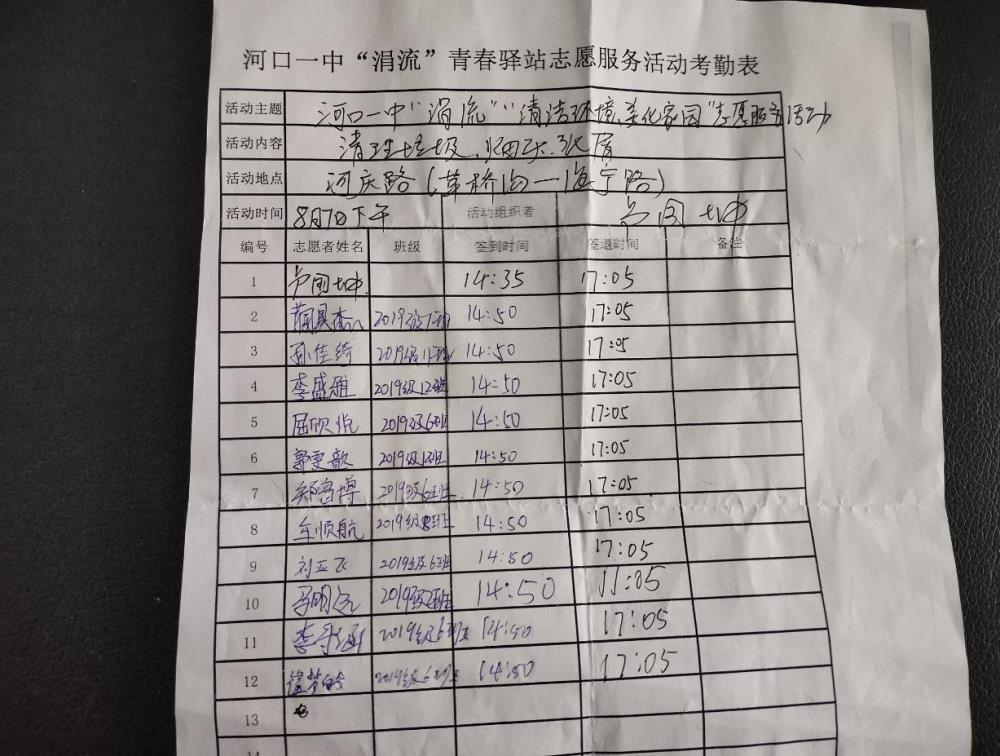 河口一中“涓流”青春驿站志愿服务活动考勤表
活动主题 河口一中“涓流”“清洁环境,美化家园”志愿服务活动
活动内容 清理垃圾、烟头、纸屑
活动地点 河庆路(草桥沟—海宁路)
活动时间 8月7日下午 活动组织者 卢国坤
编号 志愿者姓名 班级 签到时间 签退时间 备注
1 卢国坤 14:35 17:05
2 2019级 14:50 17:05
3 孙佳绮 2019级11班 14:50 17:05
4 李盛雅 2019级12班 14:50 17:05
5 屈欣悦 2019级6班 14:50 17:05
6 郭雯歆 2019级12班 14:50 17:05
7 郑富博 2019级6班 14:50 17:05
8 牟顺航 2019级8班 14:50 17:05
9 刘亚飞 2019级6班 14:50 17:05
10 冯明 2019级 14:50 17:05
11 李子涵 2019级6班 14:50 17:05
12 崔梦 2019级6班 14:50 17:05
13